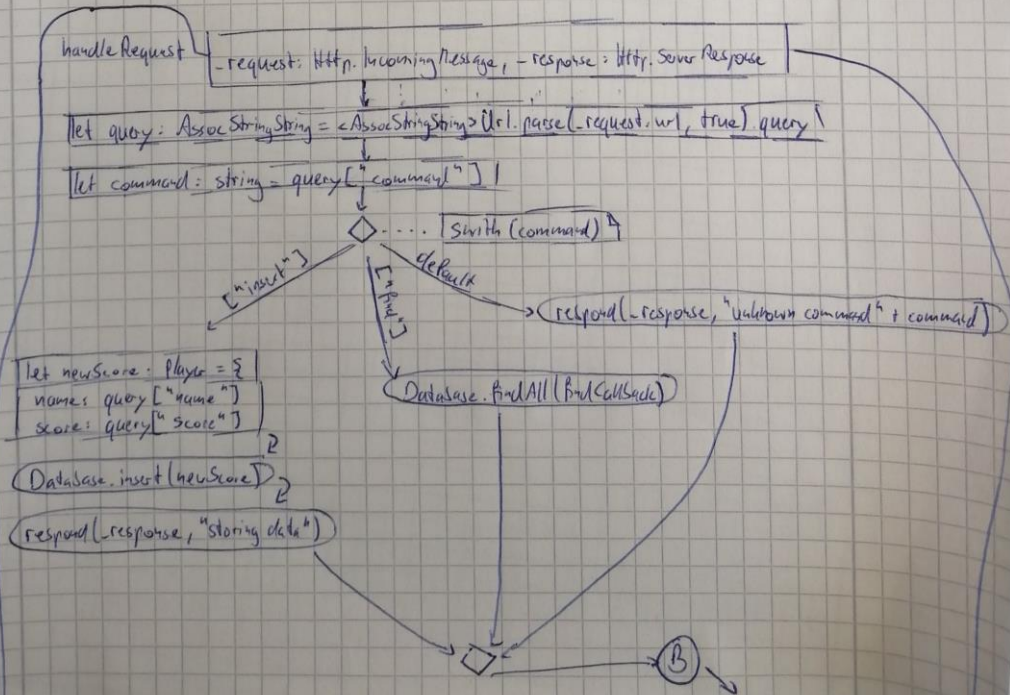 handleRequest
_request: Http.IncomingMessage, _response: Http.ServerResponse
let query: AssocStringString = <AssocStringString> Url.parse(_request.url, true).query
let command: string = query["command"]
swith (command)
["insert"]
["find"]
default
respond(_response, "unknown command" + command)
let newScore: Player = {
name: query["name"]
score: query["score"]
Database.findAll(findCallback)
Database.insert(newScore)
respond(_response, "storing data")
B